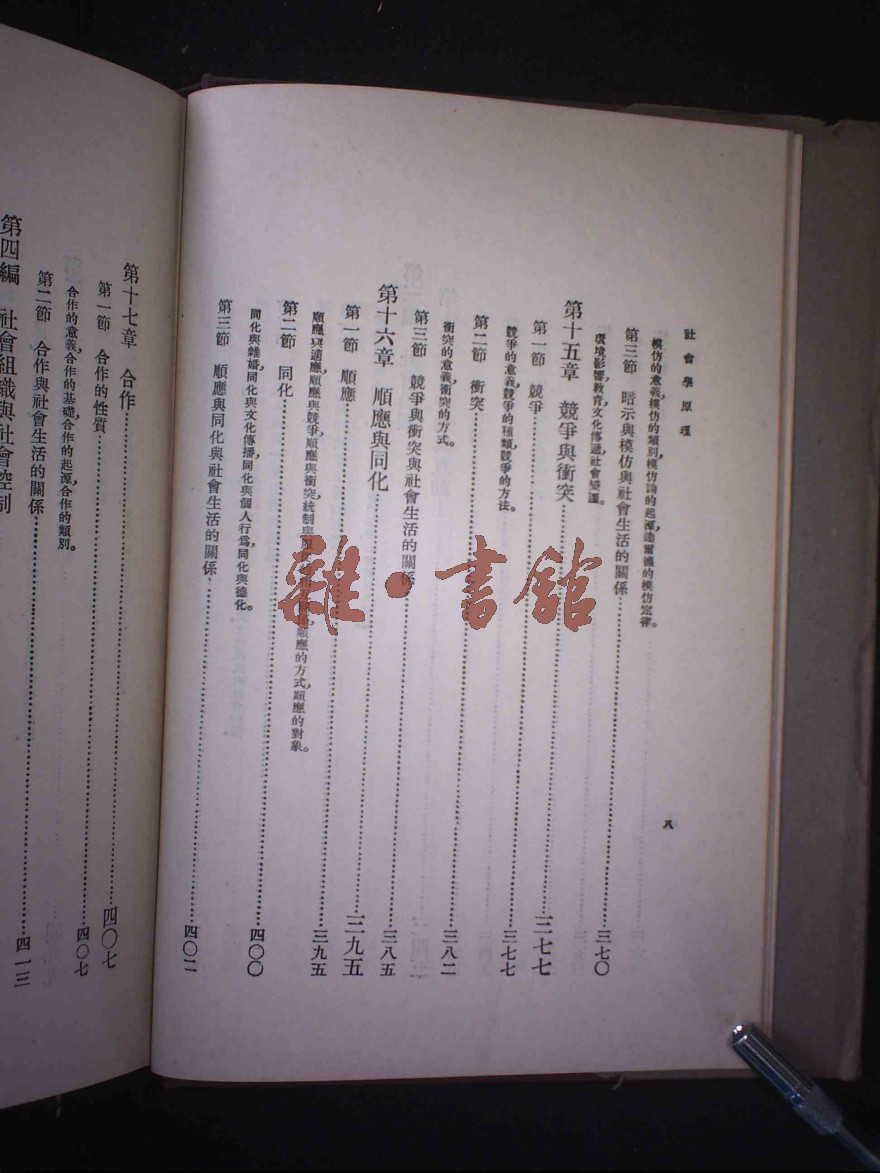 社會學原理
八
模仿的意義,模仿的類別,模仿論的起源,達爾德的模仿定律。
第三節 暗示與模仿與社會生活的關係……三七〇
環境影響,教育,文化傳遞,社會變遷。
第十五章 競爭與衝突……三七七
第一節 競爭……三七七
競爭的意義,競爭的種類,競爭的方法。
第二節 衝突……三八二
衝突的意義,衝突的方式。
第三節 競爭與衝突與社會生活的關係……三八五
第十六章 順應與同化……三九五
第一節 順應……三九五
順應與適應,順應與競爭,順應與衝突,統制與順應的方式,順應的對象。
第二節 同化……四〇〇
同化與雜婚,同化與文化傳播,同化與個人行爲,同化與德化。
第三節 順應與同化與社會生活的關係……四〇二
第十七章 合作……四〇七
第一節 合作的性質……四〇七
合作的意義,合作的基礎,合作的起源,合作的類別。
第二節 合作與社會生活的關係……四一三
第四編 社會組織與社會控制
雜·書館